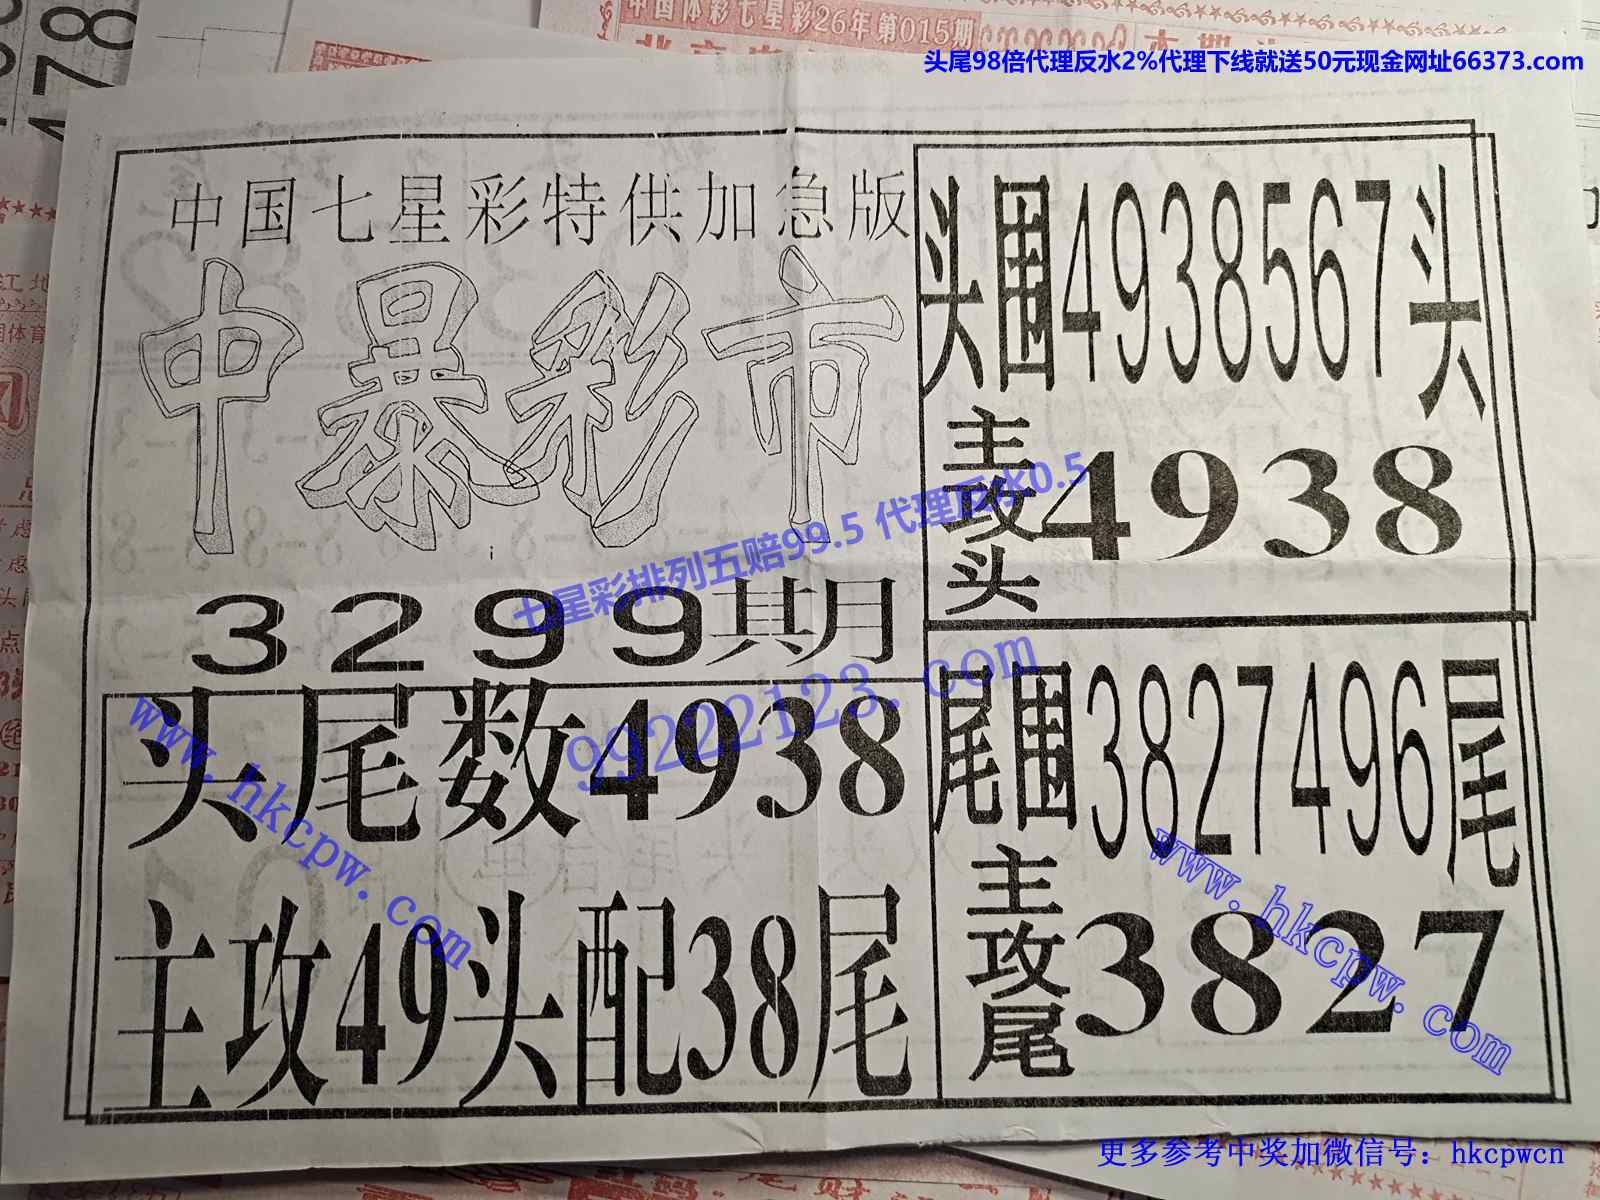 中国体彩七星彩26年第015期
头尾98倍代理反水2%代理下线就送50元现金网址66373.com
478
中国七星彩特供加急版
中暴彩市
3299期
七星彩排列五赔99.5 代理反水0.5
99222123.com
头尾数4938
主攻49头配38尾
www.hkcpw.com
头围4938567头
主攻头4938
尾围3827496尾
主攻尾3827
www.hkcpw.com
更多参考中奖加微信号：hkcpwcn